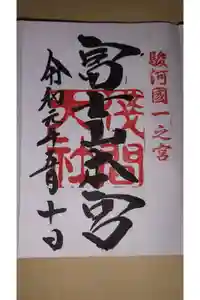 駿河國一之宮
富士山本宮
淺間
大社
令和元年五月十日